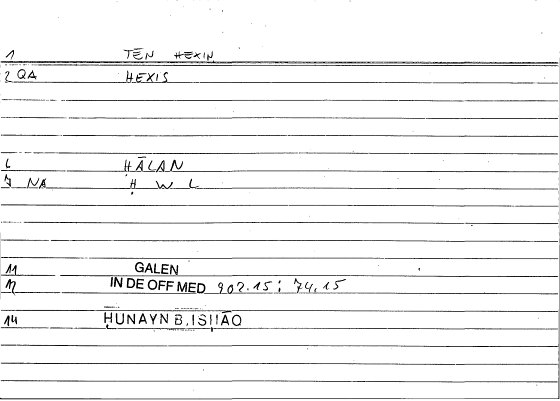 1 TĒN HEXIN
2 QA HEXIS
6 ḤĀLAN
7 NA Ḥ W L
11 GALEN
12 IN DE OFF MED 902.15; 74.15
14 ḤUNAYN B.ISḤĀQ